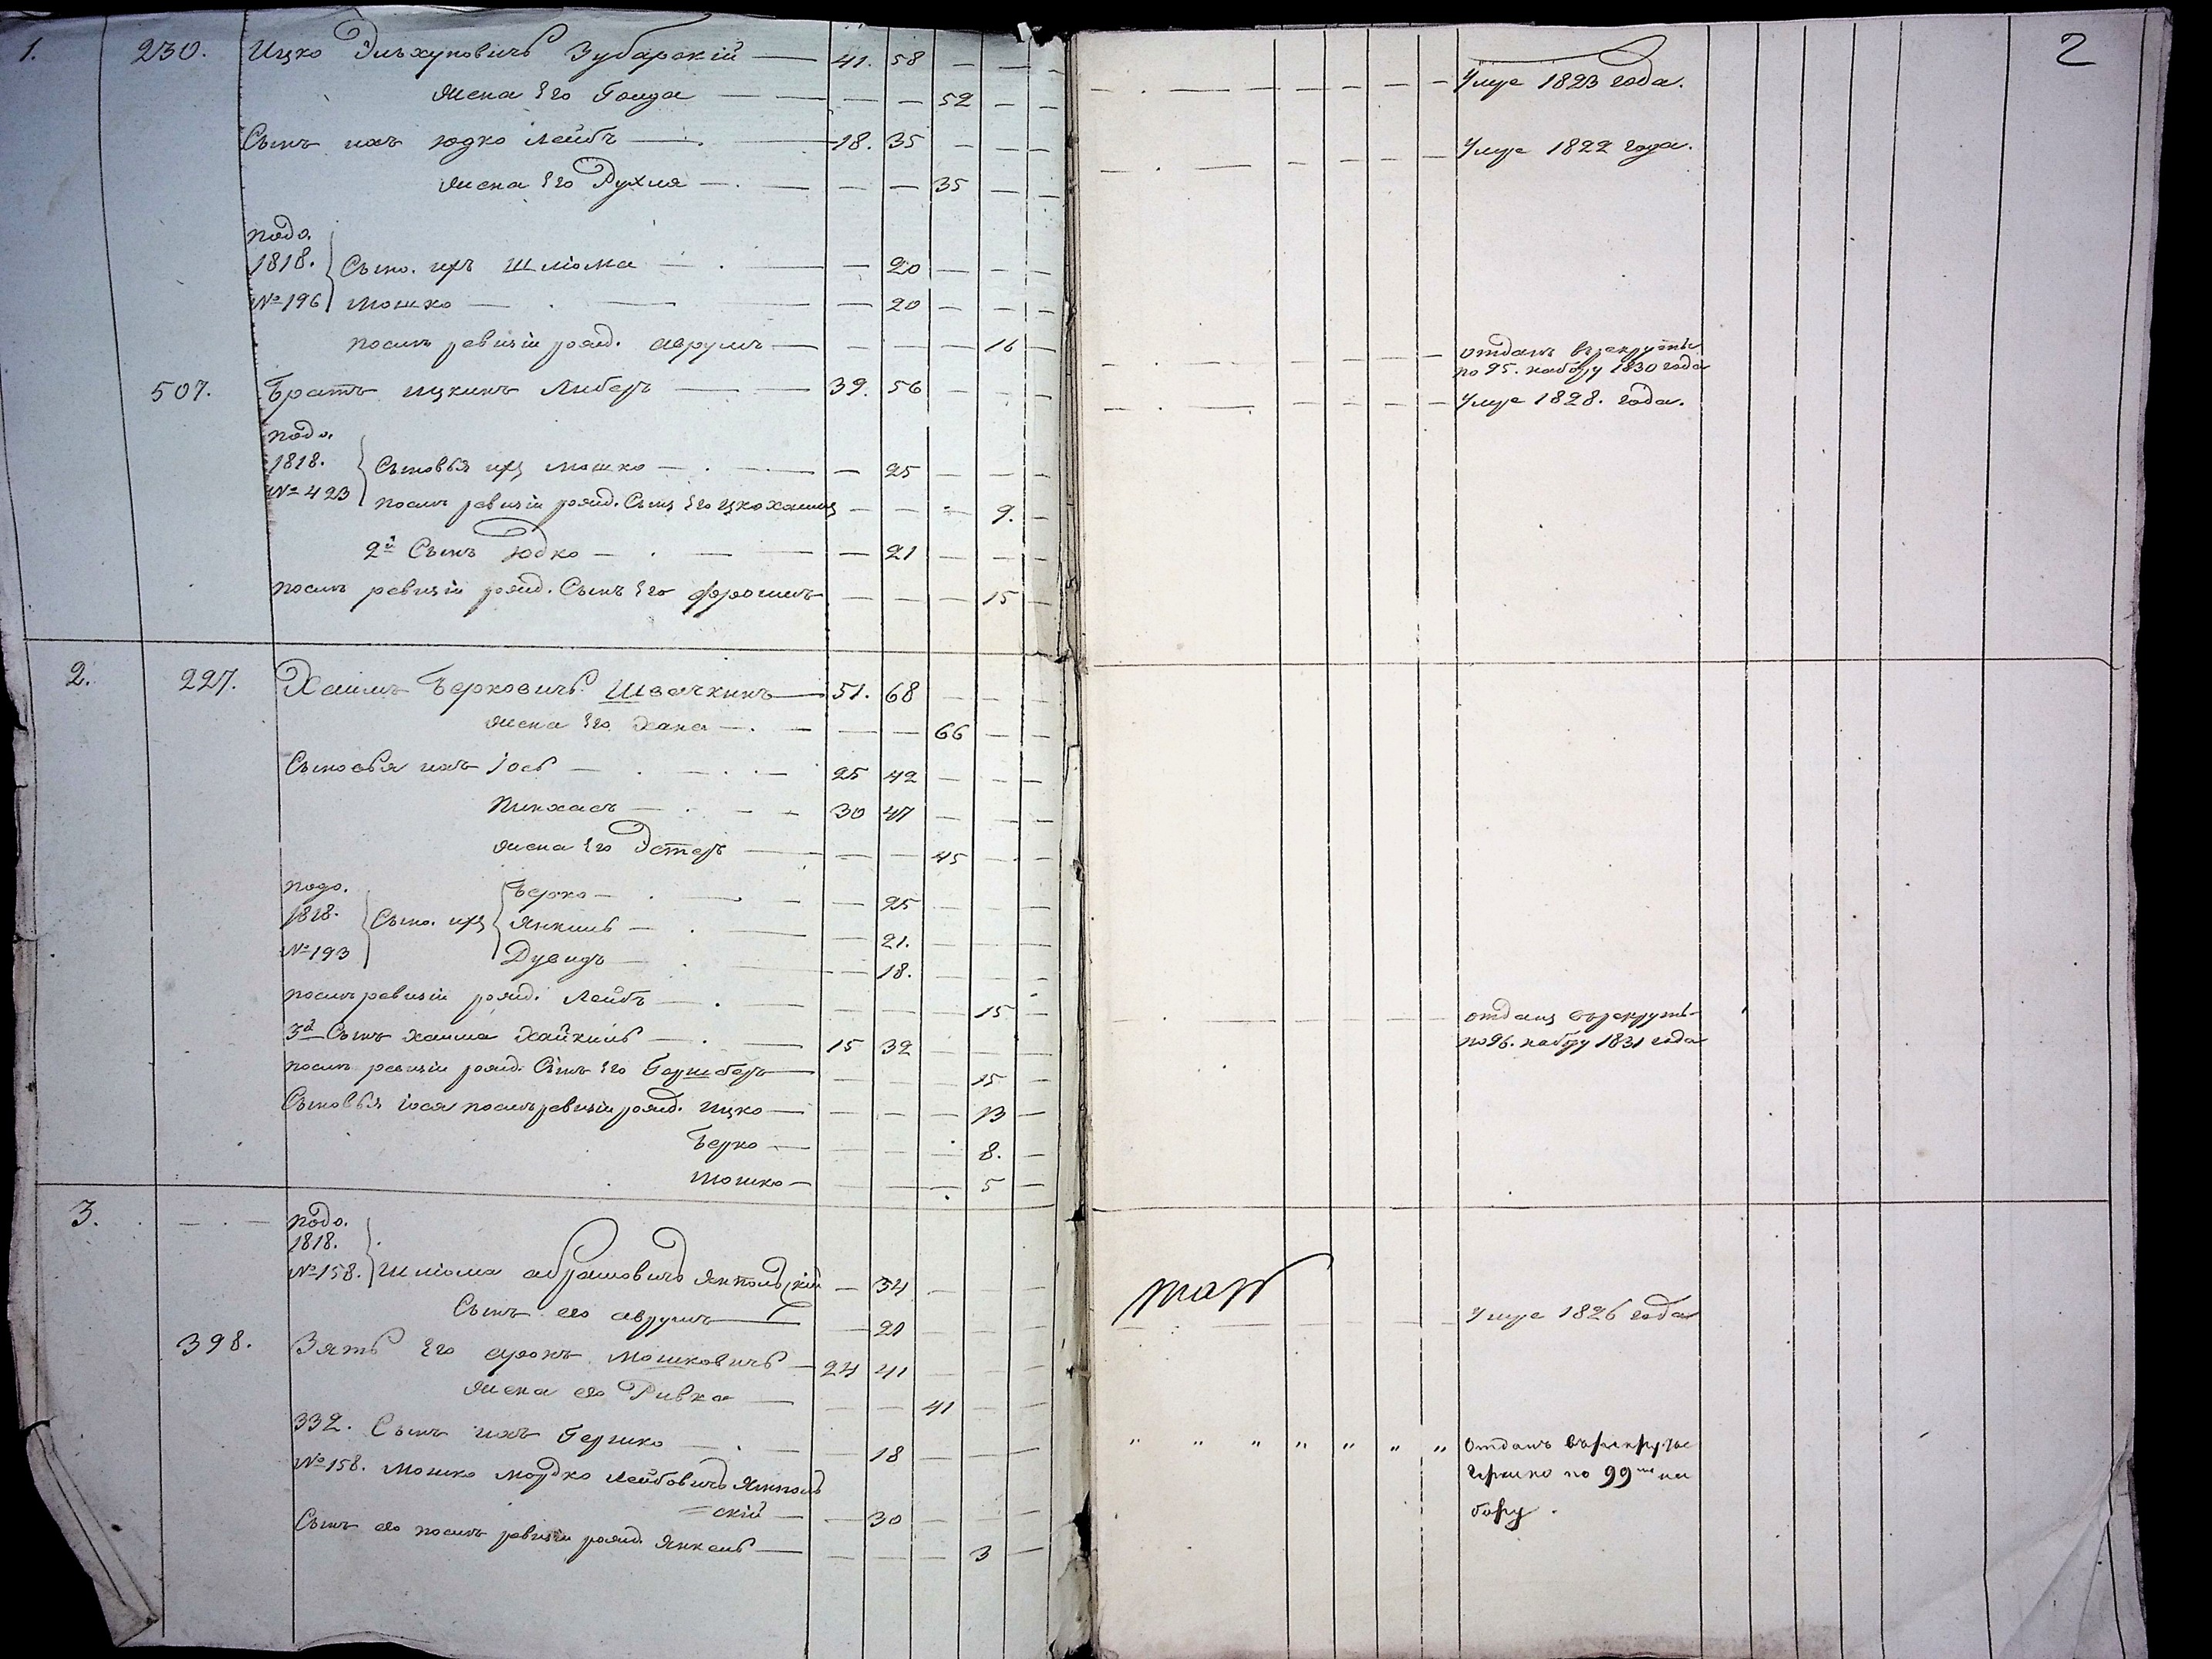 2
1. 230. Ицко Эльхуновичъ Зубарскій — 41. 58 — — —
жена Его Голда — — — 52 — —
Сынъ ихъ Юдко Лейбъ — 18. 35 — — —
жена Его Рухля — — — 35 — —
подо.
1818. Сыно. ихъ Шліома — — 20 — — —
№ 196 Мошко — — 20 — — —
послѣ ревизіи рожд. Аврумъ — — — — 16 —
507. Братъ Ицкинъ Либеръ — 39. 56 — — —
подо.
1818. Сыновья ихъ Мошко — — 25 — — —
№ 423 послѣ ревизіи рожд. Сынъ Его — — — 9. —
2й Сынъ Юдко — — 21 — — —
послѣ ревизіи рожд. Сынъ Его Фроимъ — — — 15 —
2. 227. Хаимъ Берковичъ Швачкинъ — 51. 68 — — —
жена Его Хана — — — 66 — —
Сыновья ихъ Іось — 25 42 — — —
Пинхасъ — 30 47 — — —
жена Его Эстеръ — — — 45 — —
подо. Берко — — 25 — — —
1818. Сыно. ихъ Янкиль — — 21. — — —
№ 193 Дувидъ — — 18. — — —
послѣ ревизіи рожд. Лейбъ — — — — 15 —
3й Сынъ Хаима Хайкиль — 15 32 — — —
послѣ ревизіи рожд. Сынъ Его Гершберъ — — — — 15 —
Сыновья Іося послѣ ревизіи рожд. Ицко — — — — 13 —
Берко — — — — 8. —
Мошко — — — — 5 —
3. — . — подо.
1818.
№ 158. Шліома Абрамовичъ Ямпольскій — — 54 — — —
Сынъ его Аврумъ — — 21 — — —
398. Зять Его Аронъ Мошковичъ — 24 41 — — —
жена его Ривка — — — 41 — —
332. Сынъ ихъ Гершко — — 18 — — —
№ 158. Мошко Мордко Лейбовичъ Ямполь
=скій — — 30 — — —
Сынъ его послѣ ревизіи рожд. Янкель — — — — 3 —
Умре 1823 года.
Умре 1822 года.
отданъ въ рекруты
по 95. набору 1830 года
Умре 1828. года.
отданъ въ рекруты
по 96. набору 1831 года
Умре 1826 года
" " " " " " " Отданъ въ рекруты
Гершко по 99му на
бору.